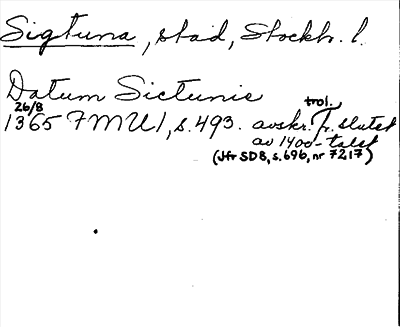 Sigtuna, stad, Stockh. l.
Datum Sictunis
26/8 trol.
1365 FMU 1, s. 493. avskr. fr. slutet
av 1400-talet
(Jfr SDB, s. 696, nr 7217)